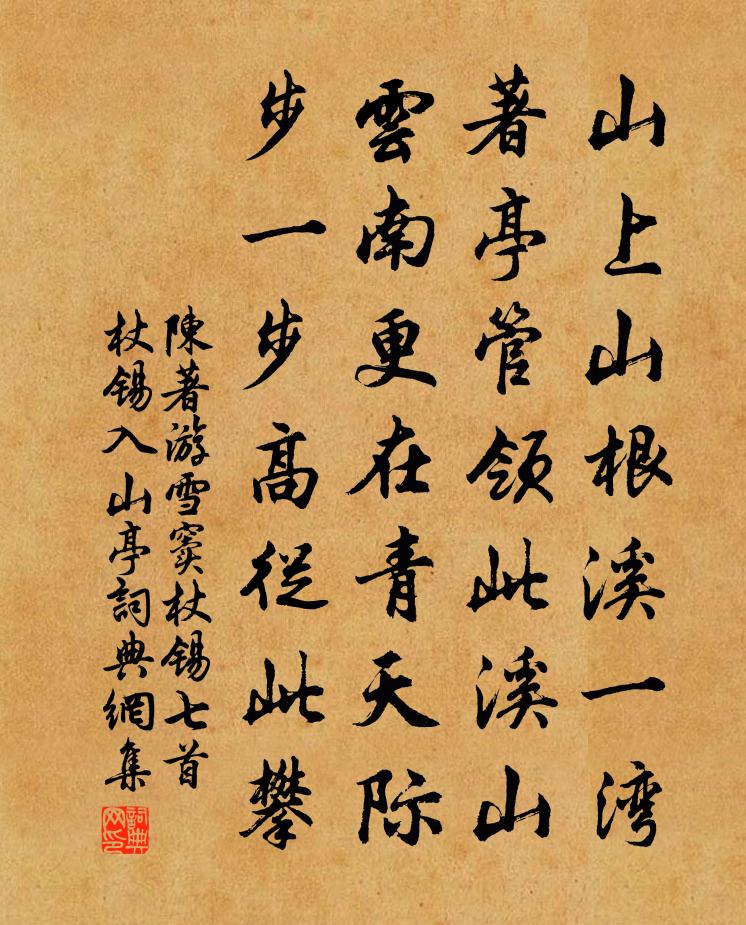 山上山根溪一湾
著亭管领此溪山
雲南更在青天际
步一步高從此攀
陳著游雪窦杖锡七首
杖锡入山亭詞典網集
詞典网印